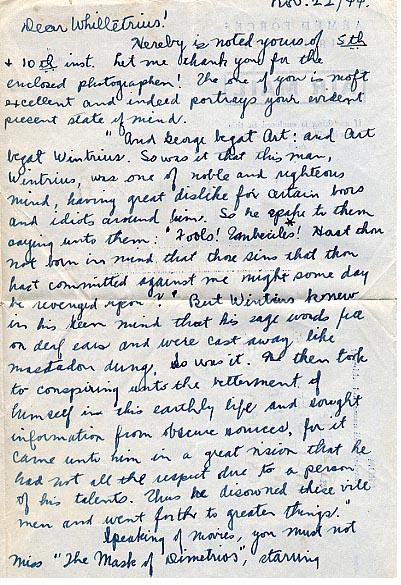 Nov. 22, '44.
Dear Whilletrius!
Hereby is noted yours of 5th
+ 10th inst. Let me thank you for the
enclosed photographen! The one of you is most
excellent and indeed portrays your evident
present state of mind.
"And George begat Art: and Art
begat Wintrius. So was it that this man,
Wintrius, was one of noble and righteous
mind, having great dislike for certain boors
and idiots around him. So he spake to them
saying unto them: "Fools! Imbeciles! Hast thou
not born in mind that those sins that thou
hast committed against me might some day
be revenged upon?" But Wintrius knew
in his keen mind that his sage words fell
on deaf ears and were cast away like
mastadon dung, so was it. He then took
to conspiring unto the betterment of
himself in this earthly life and sought
information from obscure sources, for it
came unto him in a great vision that he
had not all the respect due to a person
of his talents. Thus he disowned these vile
men and went forth to greater things."
Speaking of movies, you must not
miss "The Mask of Dimetrios", starring